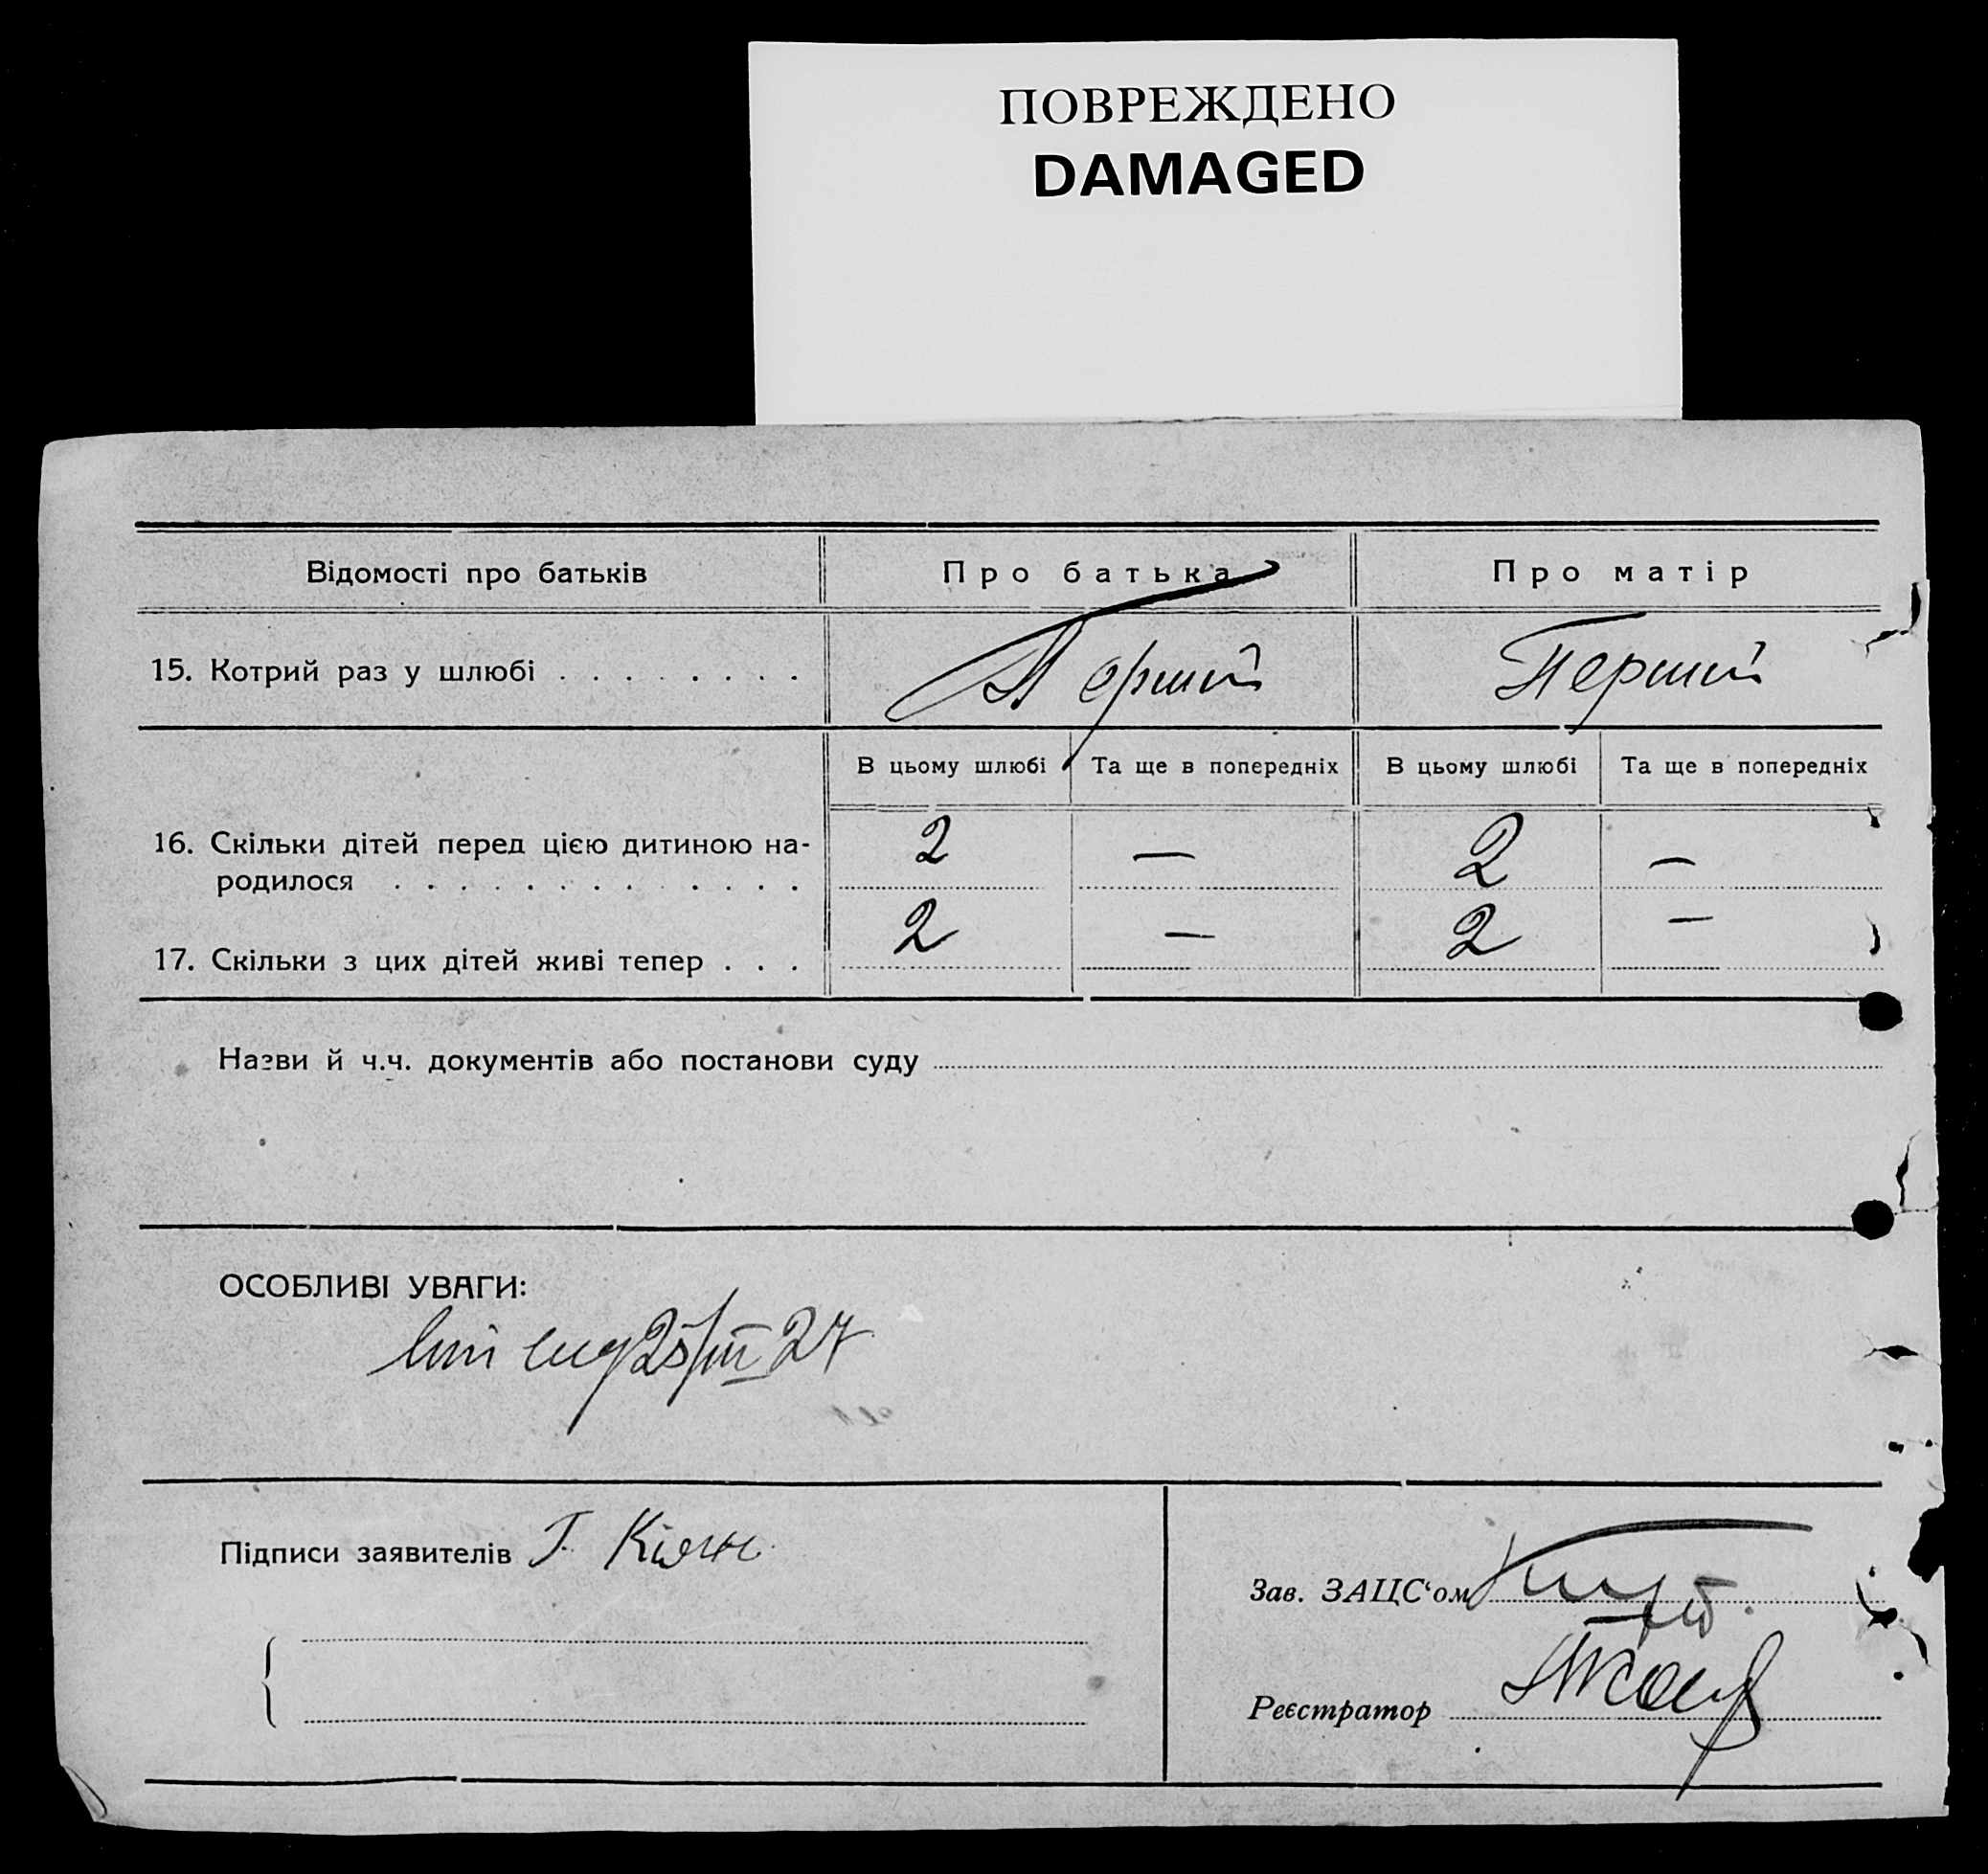 ПОВРЕЖДЕНО
DAMAGED
Відомості про батьків Про батька Про матір
15. Котрий раз у шлюбі . . . . . . . . Перший Перший
В цьому шлюбі Та ще в попередніх В цьому шлюбі Та ще в попередніх
16. Скільки дітей перед цією дитиною на-
родилося . . . . . . . . . . . . . 2 — 2 —
17. Скільки з цих дітей живі тепер . . . 2 — 2 —
Назви й ч.ч. документів або постанови суду
ОСОБЛИВІ УВАГИ:
25/III 27
Підписи заявителів Г.
Зав. ЗАЦС‘ом
Реєстратор